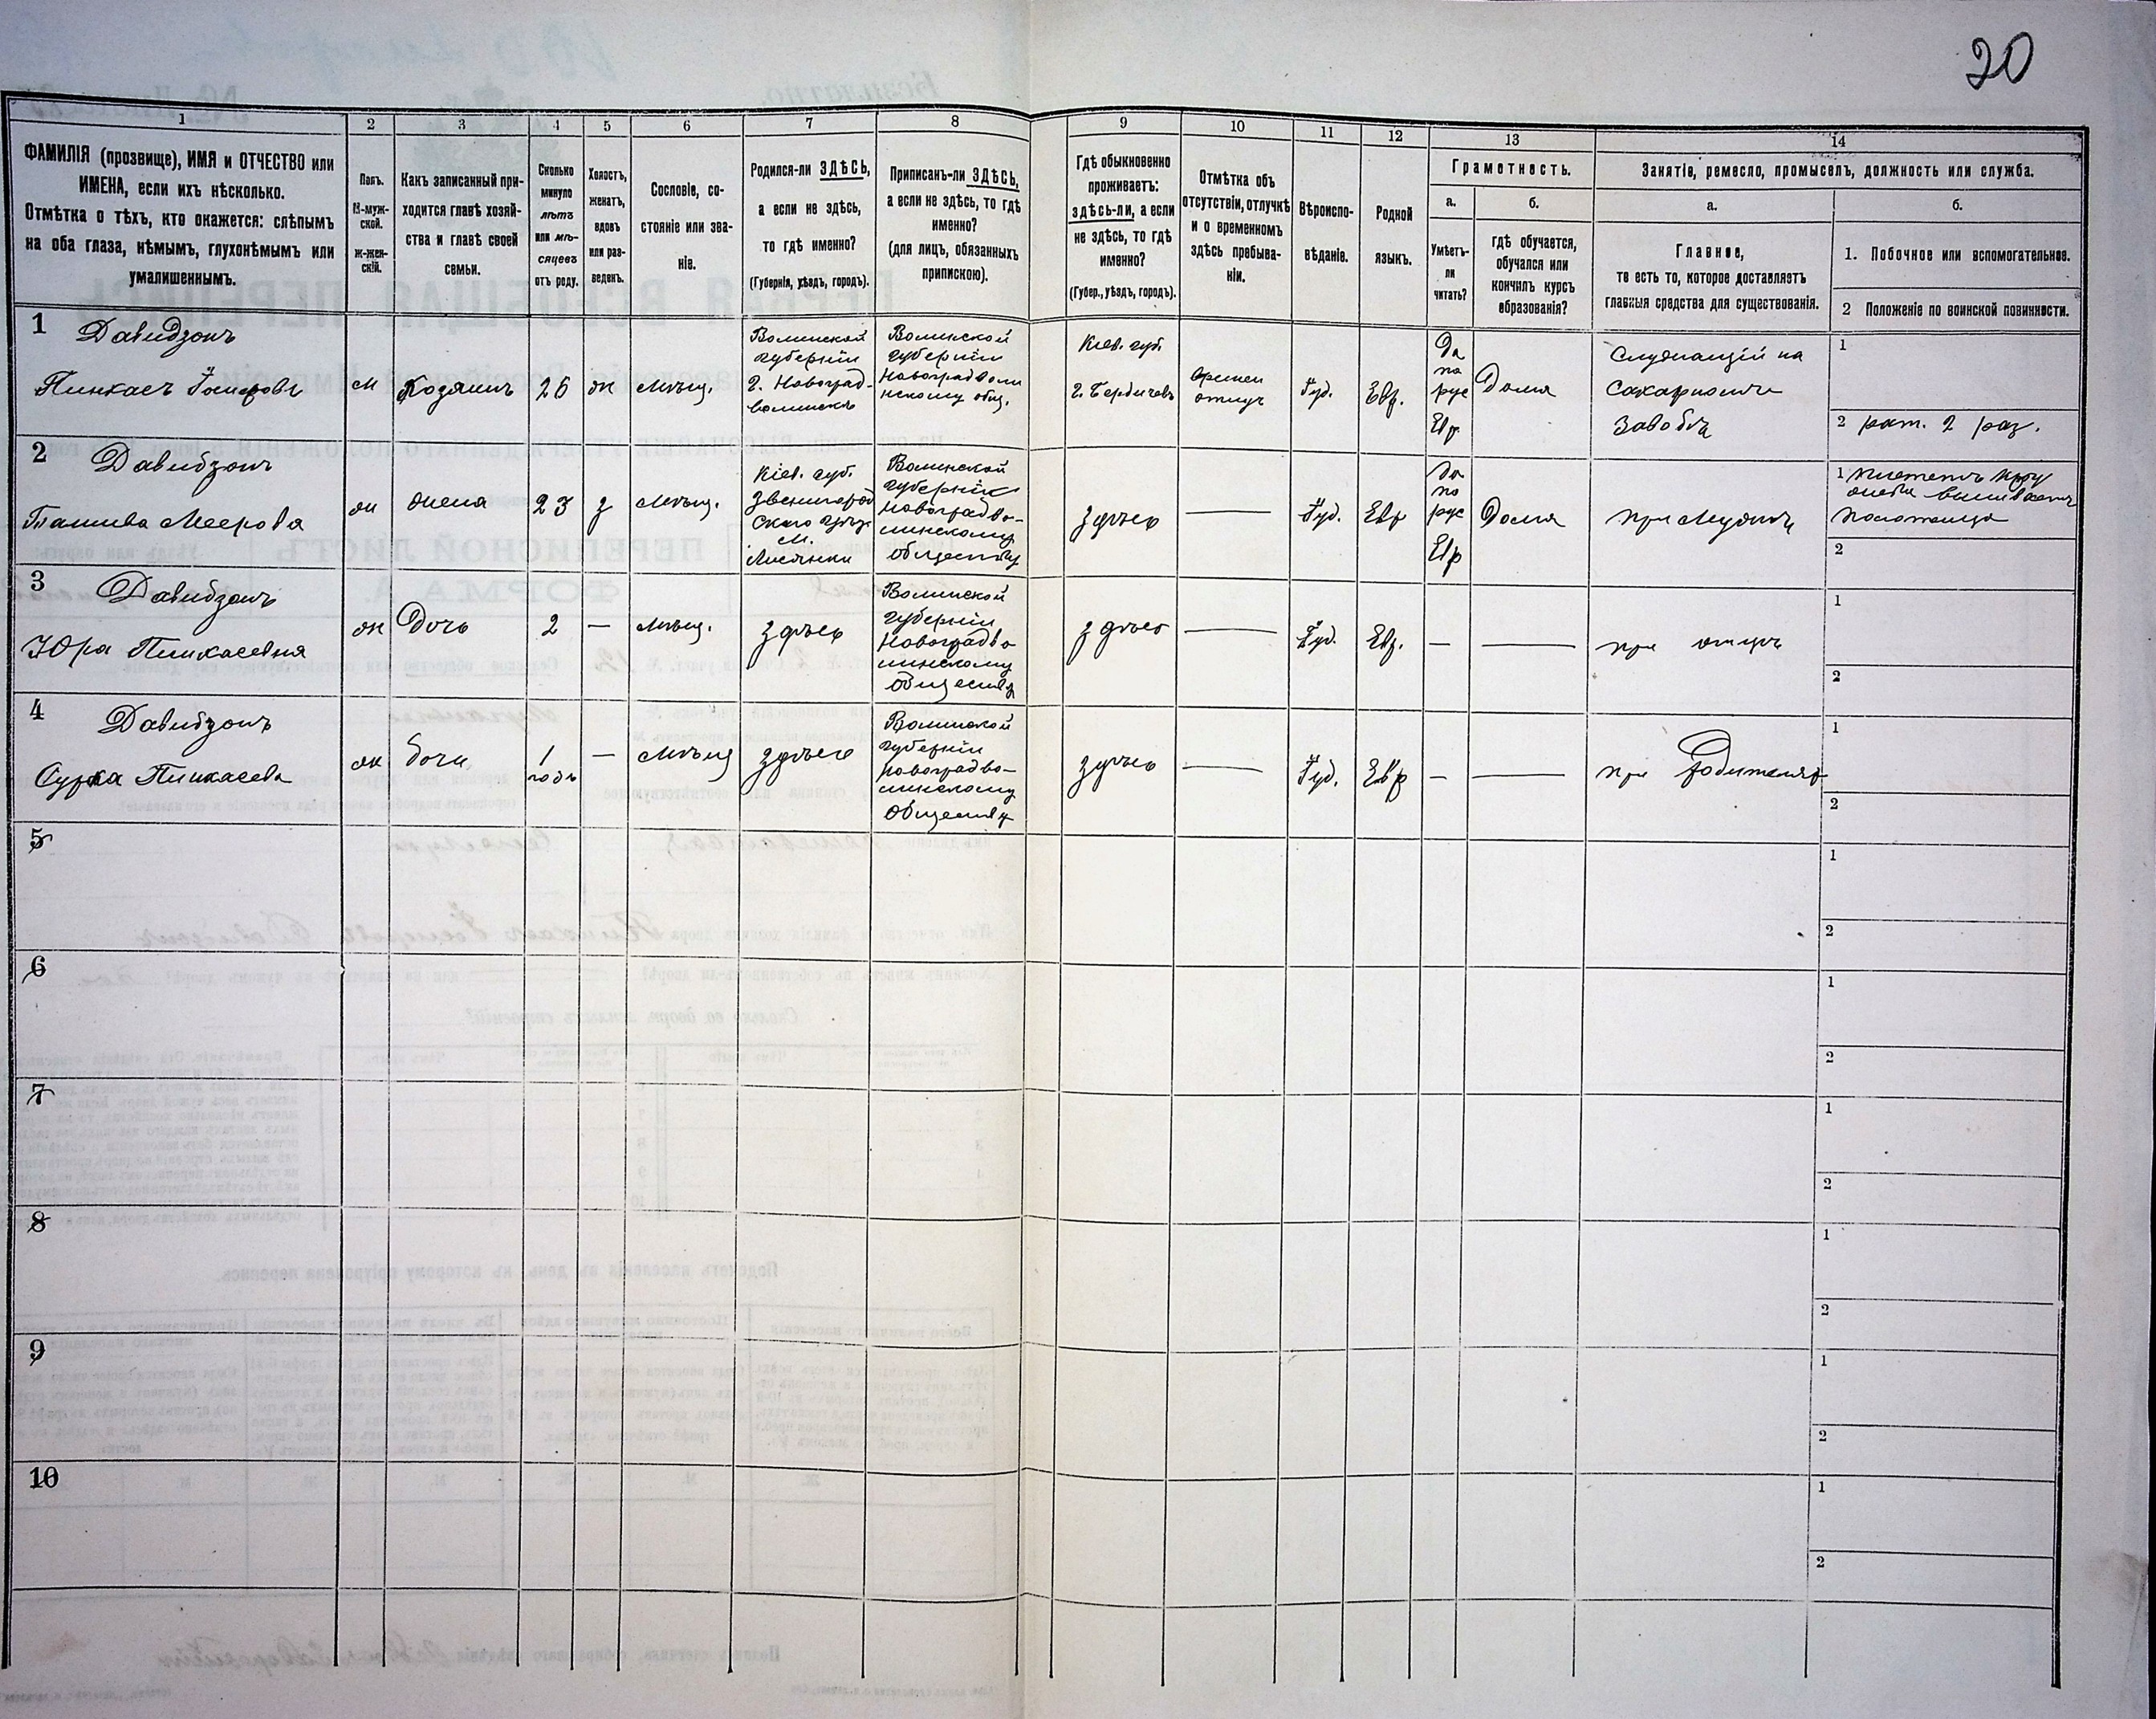 20
1
2
3
4
5
6
7
8
9
10
11
12
13
14
ФАМИЛІЯ (прозвище), ИМЯ и ОТЧЕСТВО или
ИМЕНА, если ихъ нѣсколько.
Отмѣтка о тѣхъ, кто окажется: слѣпымъ
на оба глаза, нѣмымъ, глухонѣмымъ или
умалишеннымъ.
Полъ.
М-муж-
ской.
ж-жен-
скій.
Какъ записанный при-
ходится главѣ хозяй-
ства и главѣ своей
семьи.
Сколько
минуло
лѣтъ
или мѣ-
сяцевъ
отъ роду.
Холостъ,
женатъ,
вдовъ
или раз-
веденъ.
Сословіе, со-
стояніе или зва-
ніе.
Родился-ли ЗДѢСЬ,
а если не здѣсь,
то гдѣ именно?
(Губернія, уѣздъ, городъ).
Приписанъ-ли ЗДѢСЬ,
а если не здѣсь, то гдѣ
именно?
(для лицъ, обязанныхъ
припискою).
Гдѣ обыкновенно
проживаетъ:
здѣсь-ли, а если
не здѣсь, то гдѣ
именно?
(Губер., уѣздъ, городъ).
Отмѣтка объ
отсутствіи, отлучкѣ
и о временномъ
здѣсь пребыва-
ніи.
Вѣроиспо-
вѣданіе.
Родной
языкъ.
Грамотность.
а.
Умѣетъ-
ли
читать?
б.
гдѣ обучается,
обучался или
кончилъ курсъ
образованія?
Занятіе, ремесло, промыселъ, должность или служба.
а.
Главное,
то есть то, которое доставляетъ
главныя средства для существованія.
б.
1. Побочное или вспомогательное.
2 Положеніе по воинской повинности.
1 Давидзонъ
Пинкасъ
м
Хозяинъ
26
ж
мѣщ.
Волынской
губерніи
г. Новоград-
волынскъ
Волынской
губерніи
Новоградволы
нскому общ.
Кіев. губ.
г. Бердичевъ
времен
отлуч
Іуд.
Евр.
Да
по
рус
Евр
Дома
Служащій на
Сахарномъ
Заводѣ
1
2 рат. 2 раз.
2 Давидзонъ
Меерова
ж
жена
23
з
мѣщ.
Кіев. губ.
Звенигород
ского уѣзд
м.
Лисянки
Волынской
губерніи
Новоградво-
линскому
обществу
здѣсь
—
Іуд.
Евр
Да
по
рус
Евр
Дома
при мужѣ
1 плететъ
полотенца
2
3 Давидзонъ
Юра Пинкасевна
ж
Дочь
2
—
мѣщ.
здѣсь
Волынской
губерніи
Новоградво
линскому
обществу
здѣсь
—
Іуд.
Евр.
—
—
при отцѣ
1
2
4 Давидзонъ
Сурка Пинкасева
ж
дочь
1
годъ
—
мѣщ
здѣсь
Волынской
губерніи
новоградво-
линскому
обществу
здѣсь
—
Іуд.
Евр
—
—
при Родителях
1
2
5
1
2
6
1
2
7
1
2
8
1
2
9
1
2
10
1
2